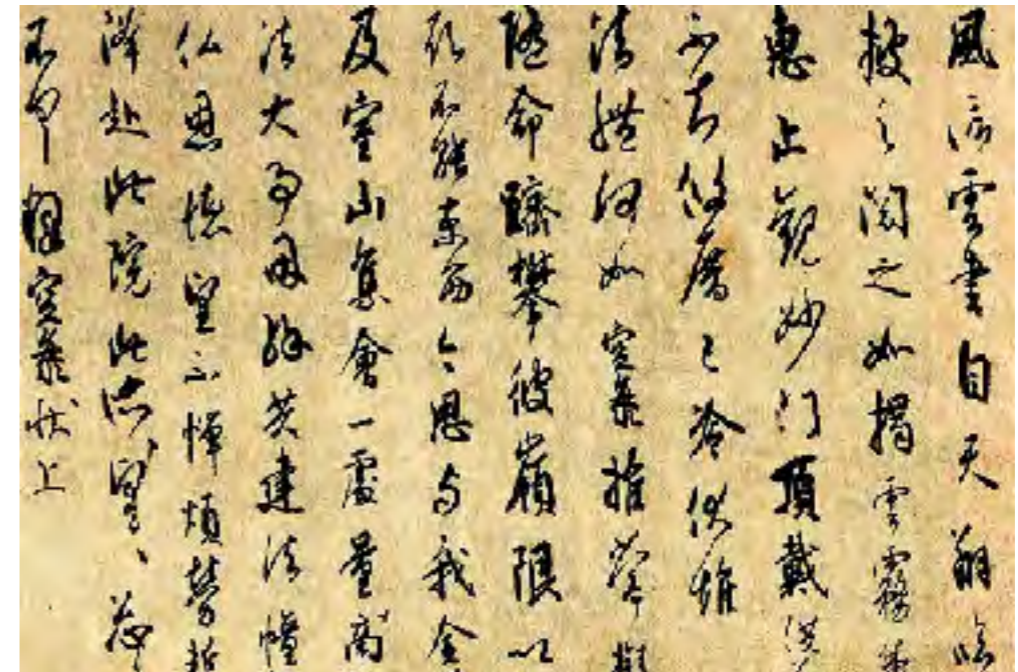 風信雲書自天翔臨
披之閱之如揭雲霧兼
惠止觀妙門頂戴供
不知攸厝已冷伏惟
法體何如空海推常擬
隨命躋攀彼嶺限以
願不能東西今思与我金
及室山集會一處量商
法大事因緣共建法幢
仏恩徳望不憚煩勞蹔
降赴此院此所望々忩
不具釋空海状上